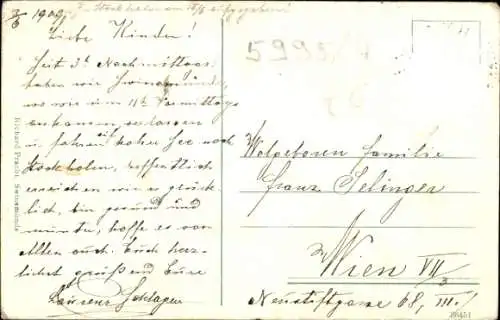 3/6 1909
Stockholm am 5/6 aufgegeben!
Liebe Kinder!
Seit 3h Nachmittags
haben wir Swinemünde,
wo wir um 11h Vormittags
ankamen, verlassen
u fahren auf hoher See nach
Stockholm, hoffentlich
erreichen wir es glück-
lich, bin gesund und
munter, hoffe es von
Allen auch. Euch herz-
lichst grüßend Eure
Schlager
Richard Swinemünde
Wolgeboren Familie
Franz Selinger
Wien VII/3
Neustiftgasse 68, III.!